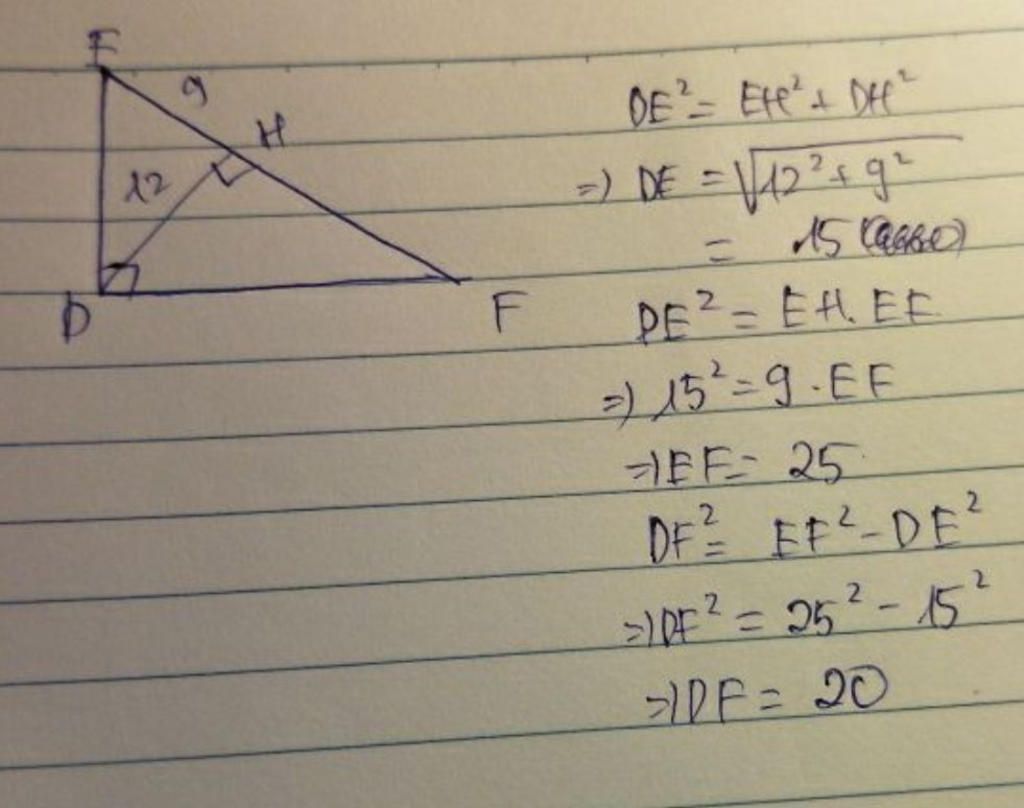 E
9
H
12
D
F
DE² = EH² + DH²
=) DE = √12² + 9²
= 15
DE² = EH. EF
=) 15² = 9 . EF
=) EF = 25
DF² = EF² - DE²
=) DF² = 25² - 15²
=) DF = 20